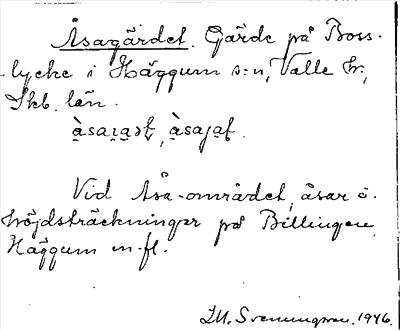 Åsagärdet. Gärde på Boss-
lycke i Häggum s:n, Valle hr,
Skb. län.
Vid Åsa-området, åsar o.
höjdsträckningar på Billingen,
Häggum m. fl.
Svenungsson. 1946.